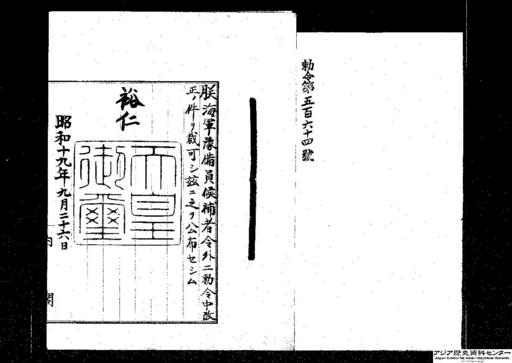 勅令第五百六十四號
朕海軍豫備員候補者令外二勅令中改
正ノ件ヲ裁可シ茲ニ之ヲ公布セシム
裕仁
天皇御璽
昭和十九年九月二十六日
内閣
アジア歴史資料センター
Japan Center for Asian Historical Records